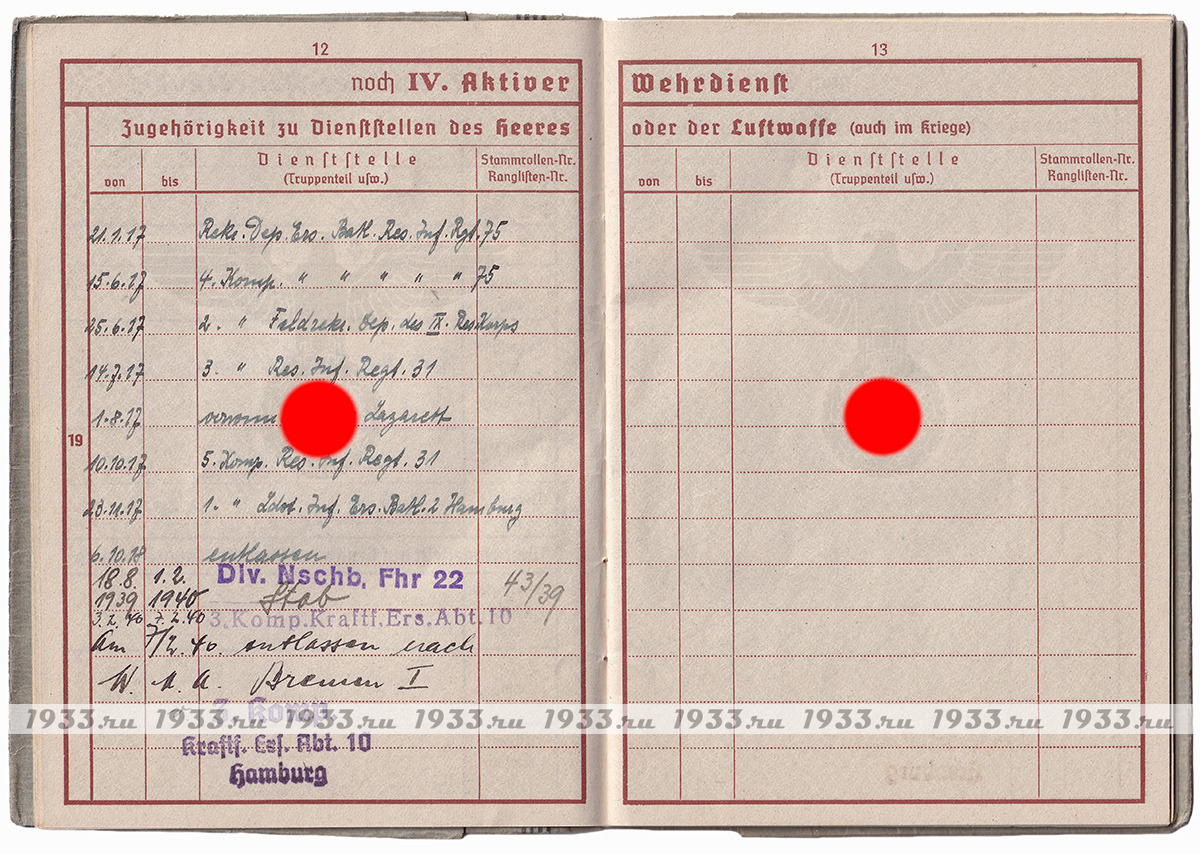 12
noch IV. Aktiver
Zugehörigkeit zu Dienststellen des Heeres
von
bis
Dienststelle
(Truppenteil usw.)
Stammrollen-Nr.
Ranglisten-Nr.
19
21.1.17 Rekr. Dep. Ers. Batl. Res. Inf. Rgt. 75
15.6.17 4. Komp. " " " " " 75
25.6.17 2. " Feldrekr. Dep. des IX. Res Korps
14.7.17 3. " Res. Inf. Regt. 31
1.8.17 Lazarett
10.10.17 5. Komp. Res. Inf. Regt. 31
23.11.17 1. " Ldst. Inf. Ers. Batl. 2 Hamburg
6.10.18 entlassen
18.8. 1.2. Div. Nschb. Fhr 22 43/39
1939 1940 Stab
3.2.40 7.2.40 3. Komp. Kraftf. Ers. Abt. 10
Am 7/2. 40. entlassen nach
W. M. A. Bremen I
3. Komp.
Kraftf. Ers. Abt. 10
Hamburg
13
Wehrdienst
oder der Luftwaffe (auch im Kriege)
von
bis
Dienststelle
(Truppenteil usw.)
Stammrollen-Nr.
Ranglisten-Nr.
1933.ru 1933.ru 1933.ru 1933.ru 1933.ru 1933.ru 1933.ru 1933.ru 1933.ru